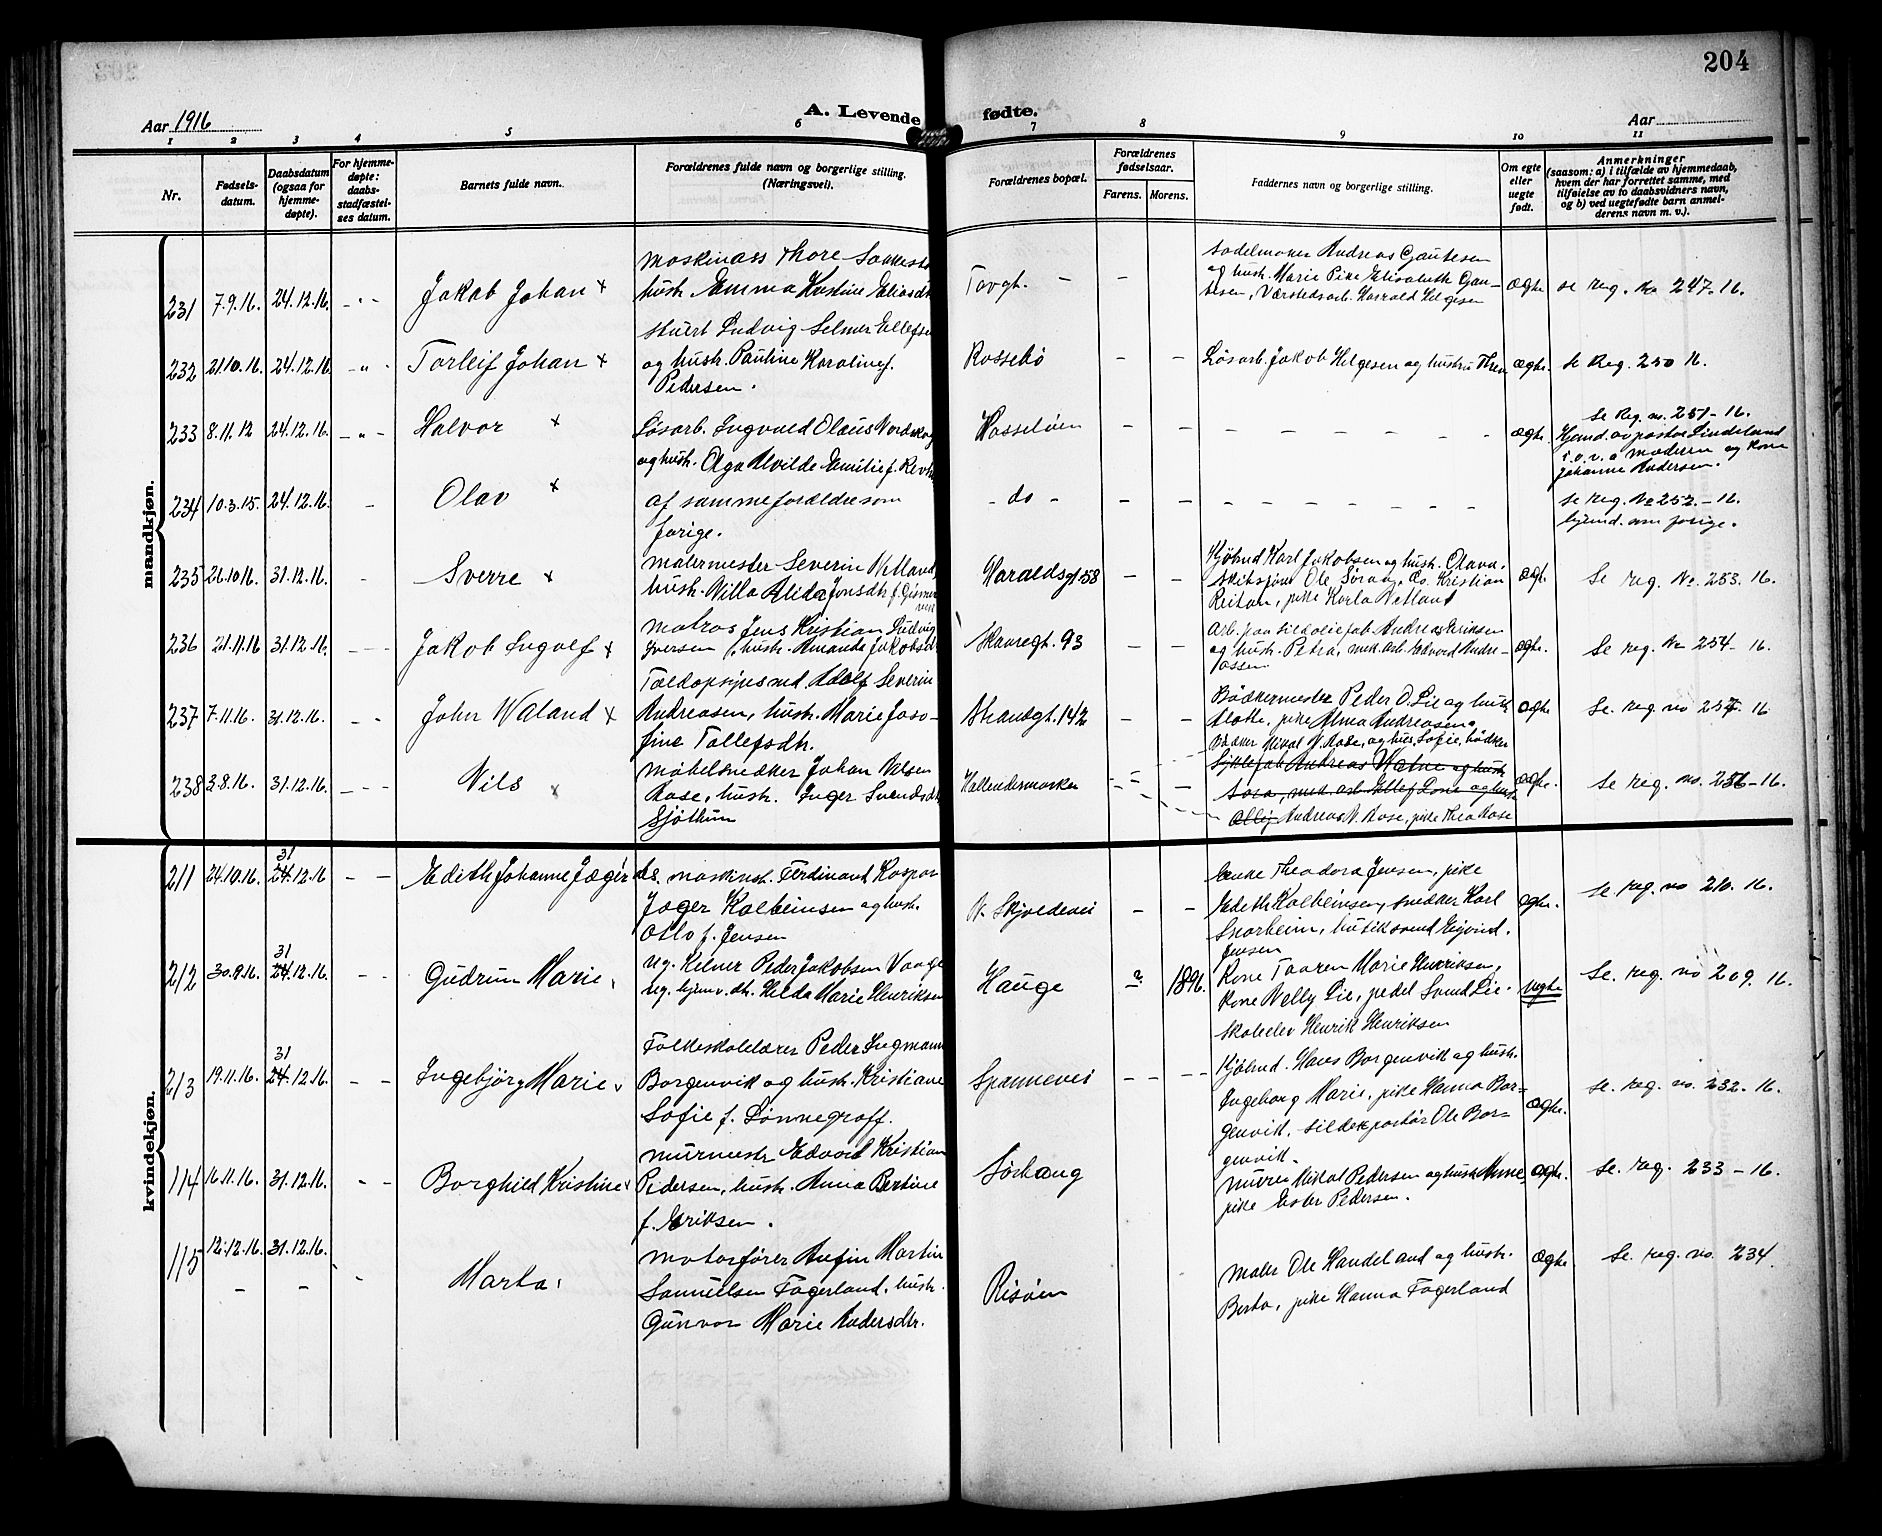 204
Aar 1916
A. Levende fødte.
Aar
1 2 3 4 5 6 7 8 9 10 11
Nr.
Fødsels-
datum.
Daabsdatum
(ogsaa for
hjemme-
døpte).
For hjemme-
døpte:
daabs-
stadfæstel-
ses datum.
Barnets fulde navn.
Forældrenes fulde navn og borgerlige stilling.
(Næringsvei).
Forældrenes bopæl.
Forældrenes
fødselsaar.
Farens. Morens.
Faddernes navn og borgerlige stilling.
Om egte
eller
uegte
født.
Anmerkninger
(saasom: a) i tilfælde av hjemmedaab,
hvem der har forrettet samme, med
tilføielse av to daabsvidners navn,
og b) ved uegtefødte barn anmel-
derens navn m. v.).
mandkjøn.
231 7.9.16. 24.12.16. Jakob Johan x
Maskinass Thore
hustr. Emma Kristine Eliasdtr
Torgt.
Sadelmaker Andreas Gautesen
og hustr. Marie Pike Elisabeth Gau-
tesen, Værstedsarb. Harald Helgesen
ægte se reg. No 247-16.
232 21.10.16. 24.12.16 Torleif Johan x
Stuert Ludvig Selmer Ellefsen
og hustr. Pauline Karoline f.
Pedersen.
Rossebø
Løsarb. Jakob Helgesen og hustru
ægte. se Reg. 250 16.
233 8.11.12 24.12.16. Halvor x
Løsarb. Ingvald Olaus
og hustr. Olga Alvilde Emilie f.
Hasseløen
ægte.
Se Reg. no. 251-16.
Hjemd. av pastor Lindeland
i. o. v. a moderen og Kone
Johanne Andersen.
234 10.3.15. 24.12.16. Olav x
af samme forældre som
forige.
- do -
se reg. No 252.-16.
hjemd. som forige.
235 26.10.16. 31.12.16. Sverre x
Malermester Severin Vetland,
hustr. Villa Alida Jonsdtr f.
Haraldsgt. 58
Kjøbmd Karl Jakobsen og hustr. Olava.
Ole do. Kristian
Reitan, pike Karla Vetland
ægt. Se reg. No. 253. 16.
236 21.11.16 31.12.16. Jakob Ingolf x
Matros Jens Kristian Ludvig
Iversen, hustr. Amanda Jakobsdtr
Skaregt. 93
Arb. paa sildoliefab. Andreas Eriksen
og hustr. Petra, mek. arb. Edvard Andre-
assen
ægte. Se reg. No 254-16.
237 7.11.16. 31.12.16. John Waland x
Toldopsynsmd Adolf Severin
Andreasen, hustr. Marie Jose-
fine Tollefsdtr.
Strandgt. 142
Bødkermester Peder O. Lie og hustr
pike Alma Andreasen.
ægte Se. reg. no 257-16
238 3.8.16. 31.12.16. Nils x
Møbelsnedker Johan Nilsen
Rase, hustr. Inger Svendsdtr
Sjøthun
Hallendermarken
Bødker Mikal N. Rase, og hus. Sofie, bødker
Sykkelfab Andreas og hustr
Sara, mek. arb. Ellef og hustr
Andreas N. Rase, pike Thea Rase
ægte. Se reg. no. 256-16.
kvindekjøn.
211 24.10.16. 31 24.12.16 Edith Johanne Jæger
ds. maskinst. Ferdinand Kaspar
Jæger Kolbeinsen og hustr.
Oslo f. Jensen
N. Skjoldevei
Enke Theodora Jensen, pike
Edith Kolbeinsen, snedker Karl
Snorheim, butiksmd Eyvind.
Jensen
ægte. Se. reg. no 210. 16.
212 30.9.16. 31 24.12.16. Gudrun Marie
ug. Kelner Peder Jakobsen Vaage
ug. hjemv. dtr. Hilda Marie Henriksen
Hauge ? 1896.
Kone Taaren Marie Henriksen,
Kone Nelly Lie, pedel Svend Lie.
skoleelev Henrik Henriksen
uegte Se. reg. no 209. 16.
213 19.11.16. 31 24.12.16. Ingebjørg Marie
Folkeskolelærer Peder Ingmann
Borgenvik og hustr. Kristiane
Sofie f. Lønnegroff.
Spannevei
Kjøbmd. Hans Borgenvik og hustr.
Ingeborg Marie, pike Hanna Bor-
genvik, sildexportør Ole Bor-
genvik.
ægte. Se. reg. no. 232-16.
114 16.11.16. 31.12.16. Borghild Kristine
Murmestr Edvard Kristian
Pedersen, hustr. Anna Bertine
f. Eriksen.
Sørhaug
Murer Mikal Pedersen og hustr Anne,
pike Ester Pedersen.
ægte. Se. reg. 233-16.
115 12.12.16. 31.12.16. Marta
Motorfører Anfin Martin
Samuelsen Fagerland, hustr.
Gunvor Marie Andersdtr.
Risøen
Maler Ole Handeland og hustr.
Berta, pike Hanna Fagerland
ægte Se. reg. no. 234.